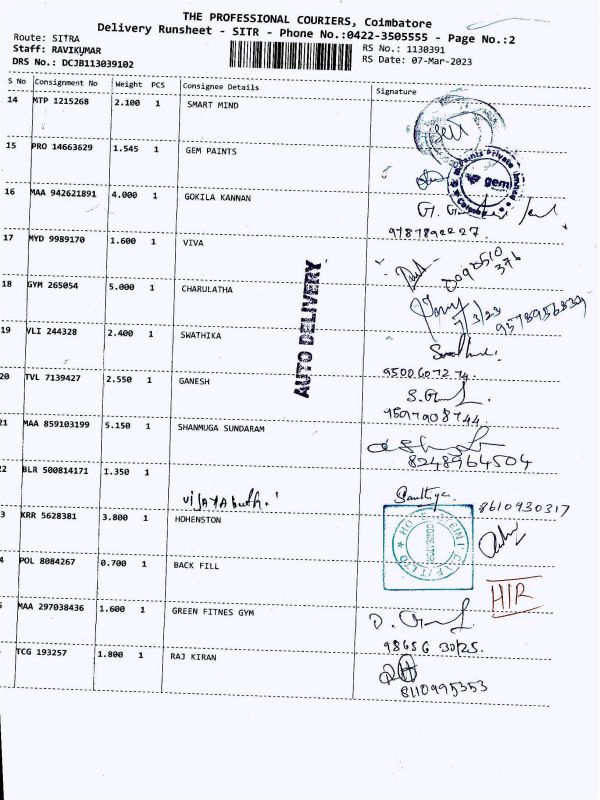 THE PROFESSIONAL COURIERS, Coimbatore
Delivery Runsheet - SITR - Phone No.:0422-3505555 - Page No.:2
Route: SITRA
Staff: RAVIKUMAR
DRS No.: DCJB113039102
RS No.: 1130391
RS Date: 07-Mar-2023
S No Consignment No Weight PCS Consignee Details Signature
14 MTP 1215268 2.100 1 SMART MIND
15 PRO 14663629 1.545 1 GEM PAINTS
gem
16 MAA 942621891 4.000 1 GOKILA KANNAN
17 MYD 9989170 1.600 1 VIVA
18 GYM 265054 5.000 1 CHARULATHA
7/3/23
AUTO DELIVERY
19 VLI 244328 2.400 1 SWATHIKA
20 TVL 7139427 2.550 1 GANESH
9500607274.
S.G
21 MAA 859103199 5.150 1 SHANMUGA SUNDARAM
8248964504
2 BLR 500814171 1.350 1
8610930317
3 KRR 5628381 3.800 1 HOHENSTON
4 POL 8084267 0.700 1 BACK FILL
HIR
5 MAA 297038436 1.600 1 GREEN FITNES GYM
98656 30125.
TCG 193257 1.800 1 RAJ KIRAN
8110995353